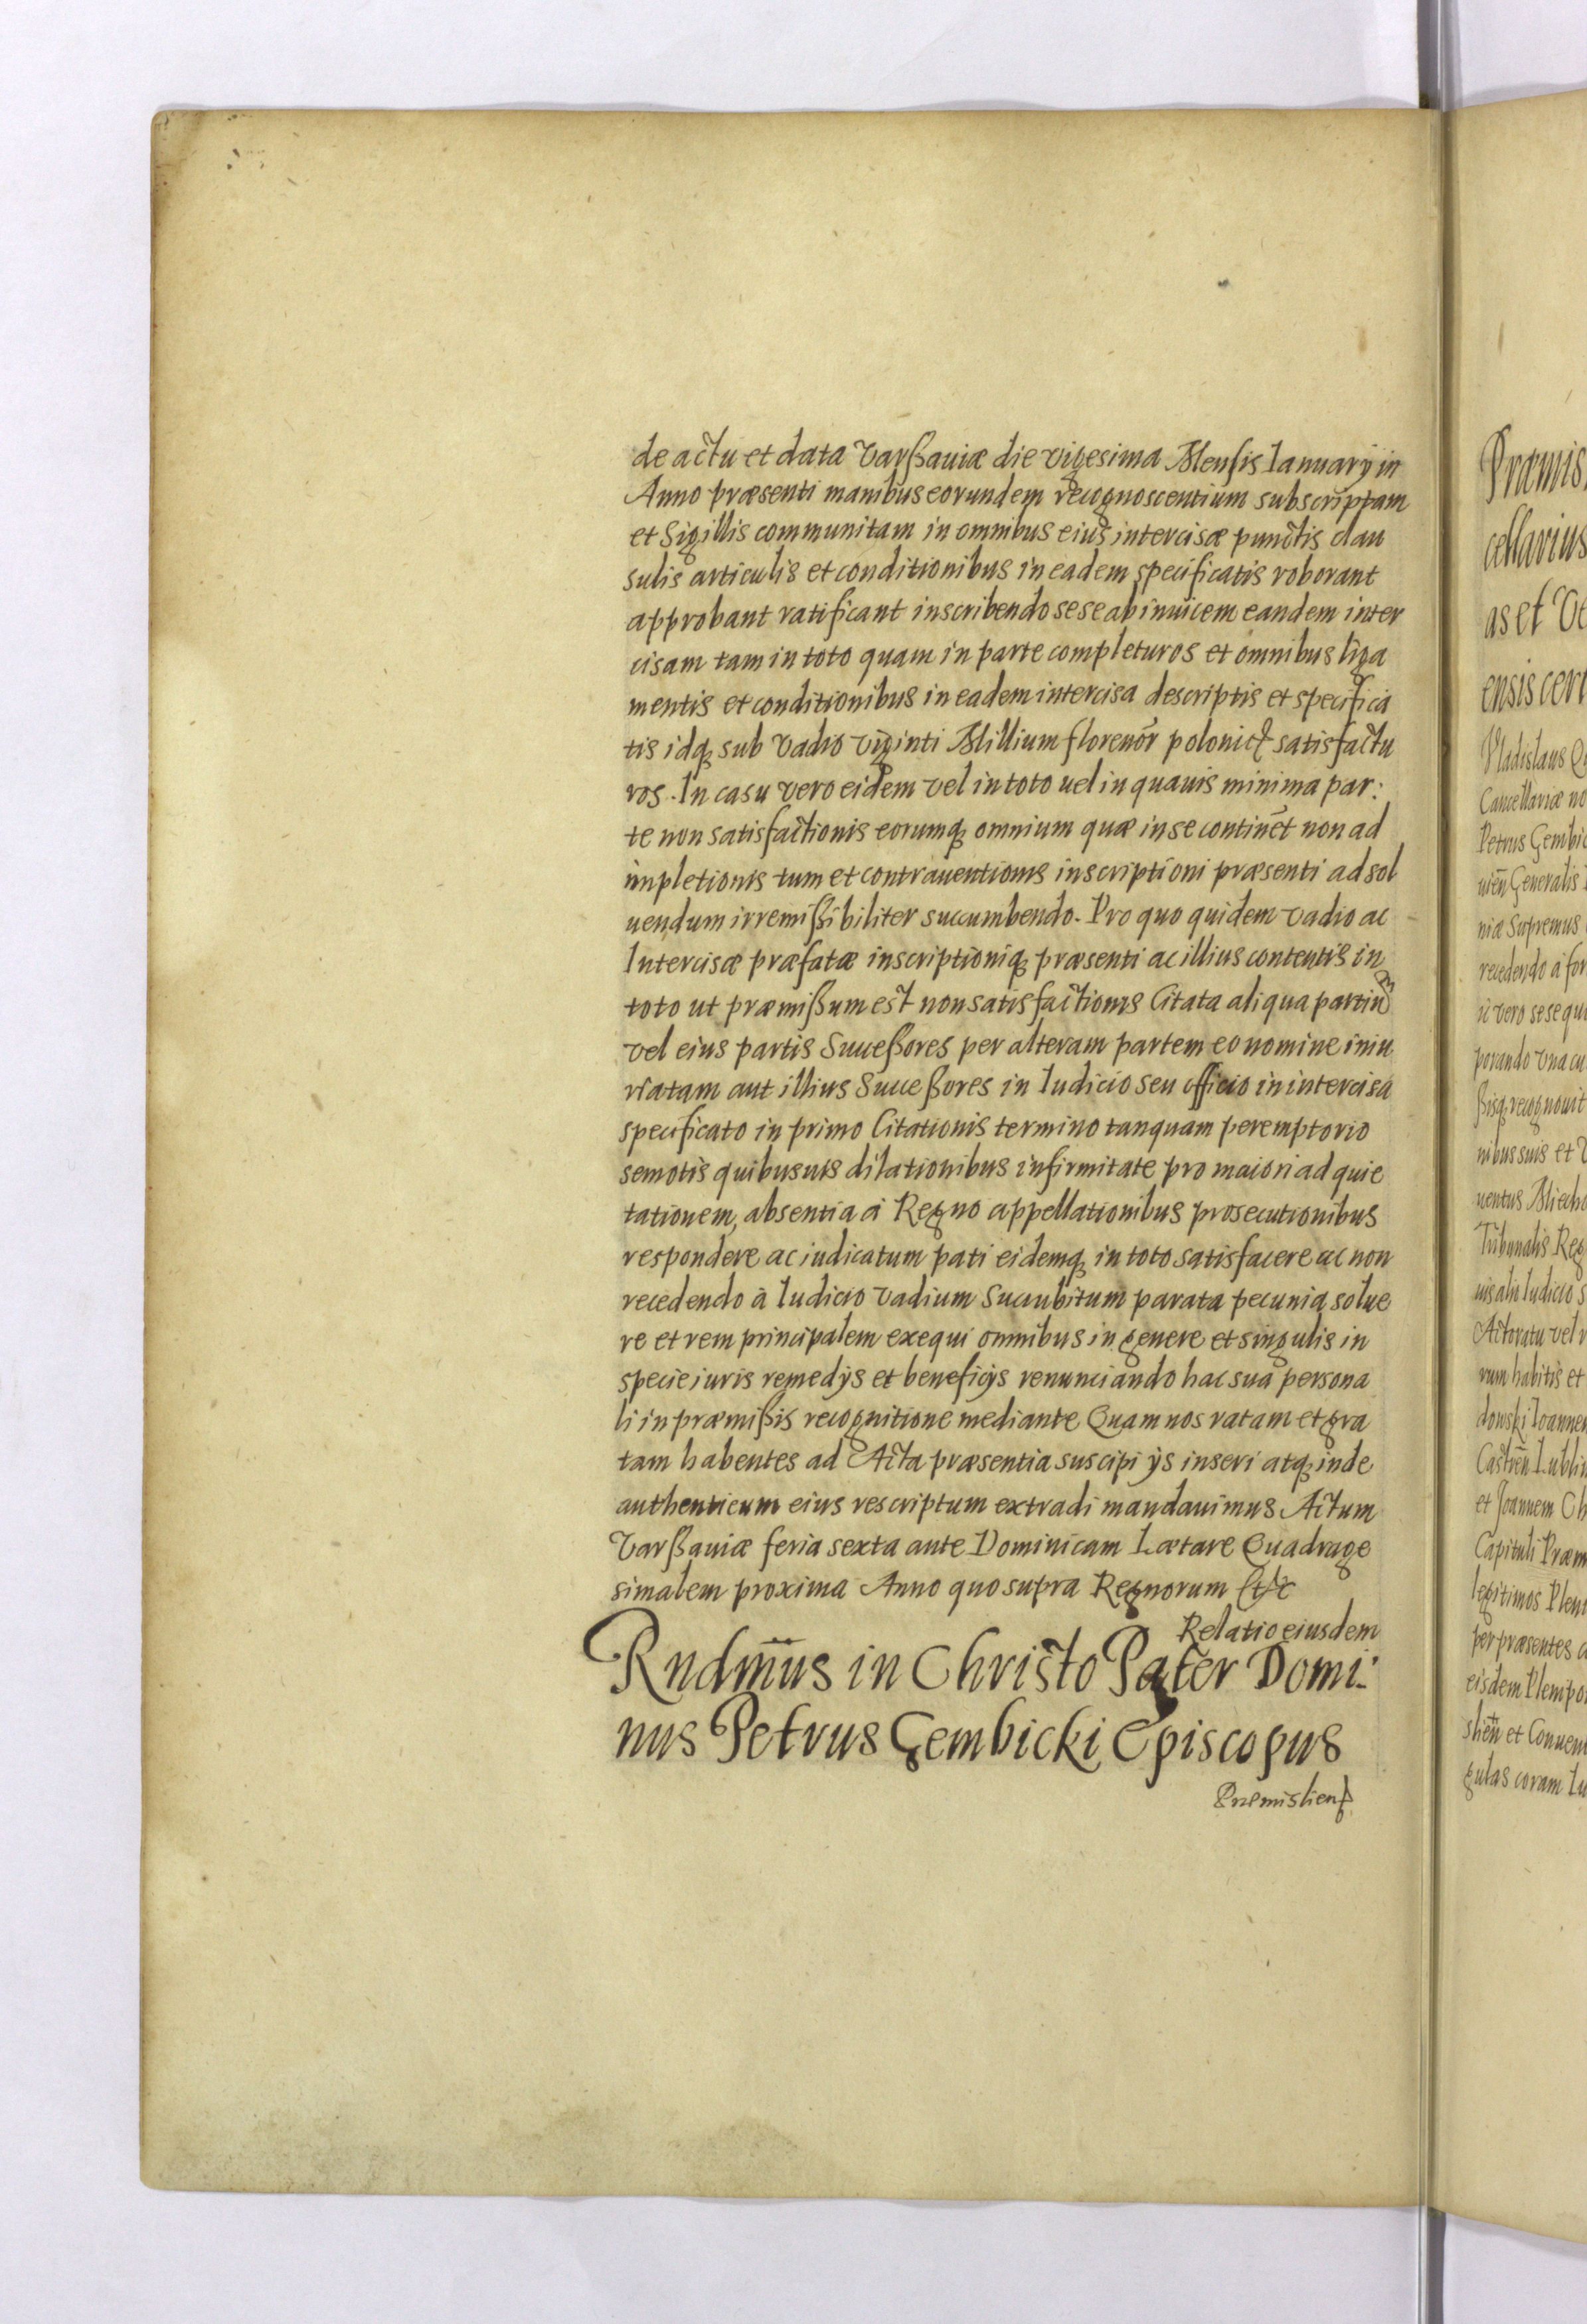 de actu et data Varßaviæ die vigesima Mensis Ianuarÿ in
Anno præsenti manibus eorundem recognoscentium subscriptam
et Sigillis communitam in omnibus eius intercisæ punctis clau
sulis articulis et conditionibus in eadem specificatis roborant
approbant ratificant inscribendo sese ab inuicem eandem inter
cisam tam in toto quam in parte completuros et omnibus liga
mentis et conditionibus in eadem intercisa descriptis et specifica
tis idq sub Vadio viginti Millium florenor̄ polonic satisfactu
ros. In casu vero eidem vel in toto uel in quauis minima par:
te non satisfactionis eorumq omnium quæ in se contineт̄ non ad
impletionis tum et contrauentionis inscriptioni præsenti ad sol
uendum irremißibiliter succumbendo. Pro quo quidem vadio ac
Intercisæ præfatæ inscriptioniq præsenti ac illius contentis in
toto ut præmißum est non satisfactionis Citata aliqua partium
vel eius partis Succeßores per alteram partem eo nomine iniu
riatam aut illius Succeßores in Iudicio seu officio in intercisa
specificato in primo Citationis termino tanquam peremptorio
semotis quibusuis dilationibus infirmitate pro maiori ad quie
tationem, absentia á Regno appellationibus prosecutionibus
respondere ac iudicatum pati eidemq in toto satisfacere ac non
recedendo à Iudicio vadium Succubitum parata pecunia solue
re et rem principalem exequi omnibus in genere et singulis in
specie iuris remedÿs et beneficÿs renunciando hac sua persona
li in præmißis recognitione mediante Quam nos ratam et gra
tam habentes ad Acta præsentia suscipi ÿs inseri atq inde
authenticum eius rescriptum extradi mandauimus Actum
Varßauiæ feria sexta ante Dominicam Lætare Quadrage
simalem proxima Anno quo supra Regnorum &c
Relatio eiusdem
Rndm̄us in Christo Pater Domi:
nus Petrus Gembicki Episcopus
Præmislien
Præmis
cellarius
as et Ve
ensis cert
Vladislaus
Cancellariæ no
Petrus Gembic
uien̄ Generalis
niæ Supremus
recedendo á for
ic vero sese qu
porando vna cu
ßisq recognouit
nibus suis et
uentus Miecho
Tribunalis Reg
uis alio Iudicio s
Actoratu vel
rum habitis et
dowski Ioannem
Castren̄ Lublin
et Joannem Ch
Capituli Præm
legitimos Pleni
per præsentes
eisdem Plenipo
slien̄ et Conuen
gulas coram Iu